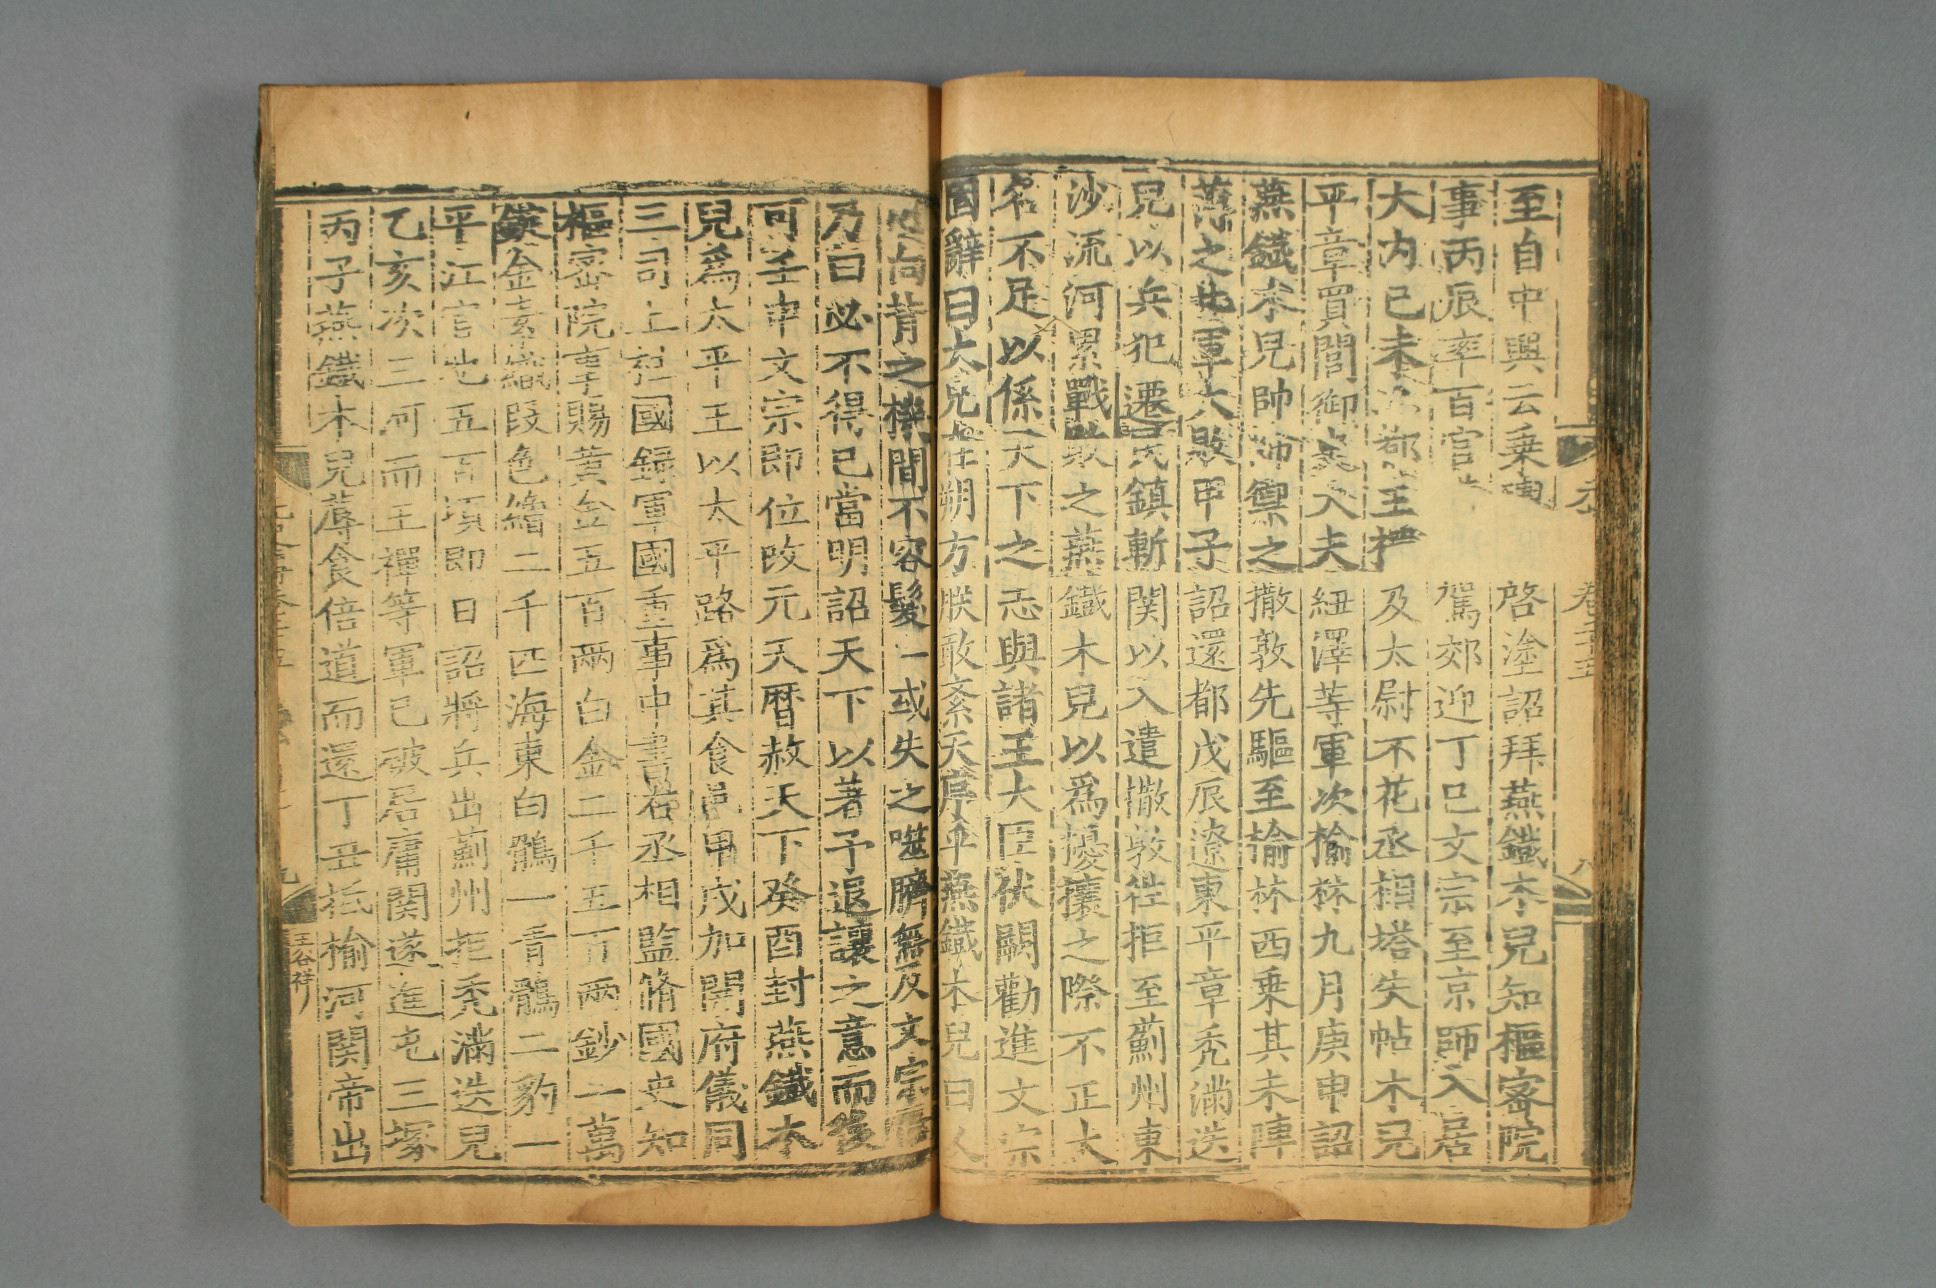 至自中興云乗輿啓塗詔拜燕鐵木兒知樞密院
事丙辰率百官駕郊迎丁巳文宗至京師入居
大内己未都王及太尉不花丞相塔失帖木兒
平章買閭御史大夫紐澤等軍次榆林九月庚申詔
燕鐵木兒帥師禦之撒敦先驅至榆林西乗其未陣
薄之北軍大敗甲子詔還都戊辰遼東平章禿滿迭
兒以兵犯遷民鎮斬関以入遣撒敦徃拒至薊州東
沙流河累戰敗之燕鐵木兒以爲擾攘之際不正大
名不足以係天下之志與諸王大臣伏闕勸進文宗
固辭曰大兄在朔方朕敢紊天序乎燕鐵木兒曰人
心向背之機間不容髮一或失之噬臍無及文宗
乃曰必不得已當明詔天下以著予退讓之意而後
可壬申文宗即位改元天曆赦天下癸酉封燕鐵木
兒爲太平王以太平路爲其食邑甲戌加開府儀同
三司上柱國録軍國重事中書右丞相監脩國史知
樞密院事賜黃金五百兩白金二千五百兩鈔一萬
錠金素織段色繒二千匹海東白鶻一青鶻二豹一
平江官地五百頃即日詔將兵出薊州拒禿滿迭兒
乙亥次三河而王禪等軍已破居庸関遂進屯三塚
丙子燕鐵木兒蓐食倍道而還丁丑抵榆河関帝出
卷二十五
八
九